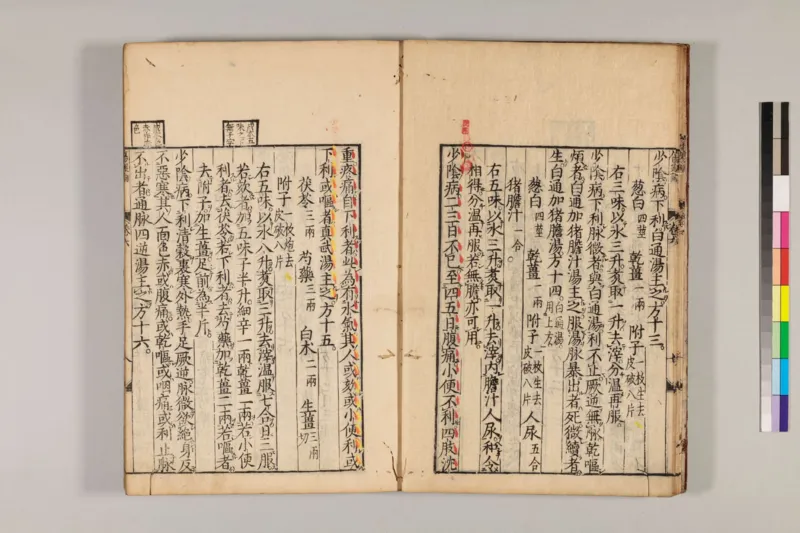 少陰病下利白通湯主之方十三。
葱白四莖 乾薑一兩 附子一枚生去皮破八片
右三味以水三升煑取一升去滓分温再服。
少陰病下利脉微者與白通湯利不止厥逆無脉乾嘔
煩者白通加猪膽汁湯主之服湯脉暴出者死微續者
生白通加猪膽湯方十四白通湯用上方
葱白四莖 乾薑一兩 附子一枚生去皮破八片 人尿五合
猪膽汁一合。
右五味以水三升煑取一升去滓内膽汁人尿和令
相得分温再服若無膽亦可用。
少陰病二三日不已至四五日腹痛小便不利四肢沈
重疼痛自下利者此為有水氣其人或欬或小便利或
下利或嘔者真武湯主之方十五。
茯苓三兩 芍藥三兩 白术二兩 生薑三兩切
附子一枚炮去皮破八片
右五味以水八升煑取三升去滓温服七合日三服
若欬者加五味子半升細辛一兩乾薑一兩若小便
利者去茯苓若下利者去芍藥加乾薑二兩若嘔者
去附子加生薑足前為半斤。
少陰病下利清穀裏寒外熱手足厥逆脉微欲絶身反
不惡寒其人面色赤或腹痛或乾嘔或咽痛或利止脉
不出者通脉四逆湯主之方十六。